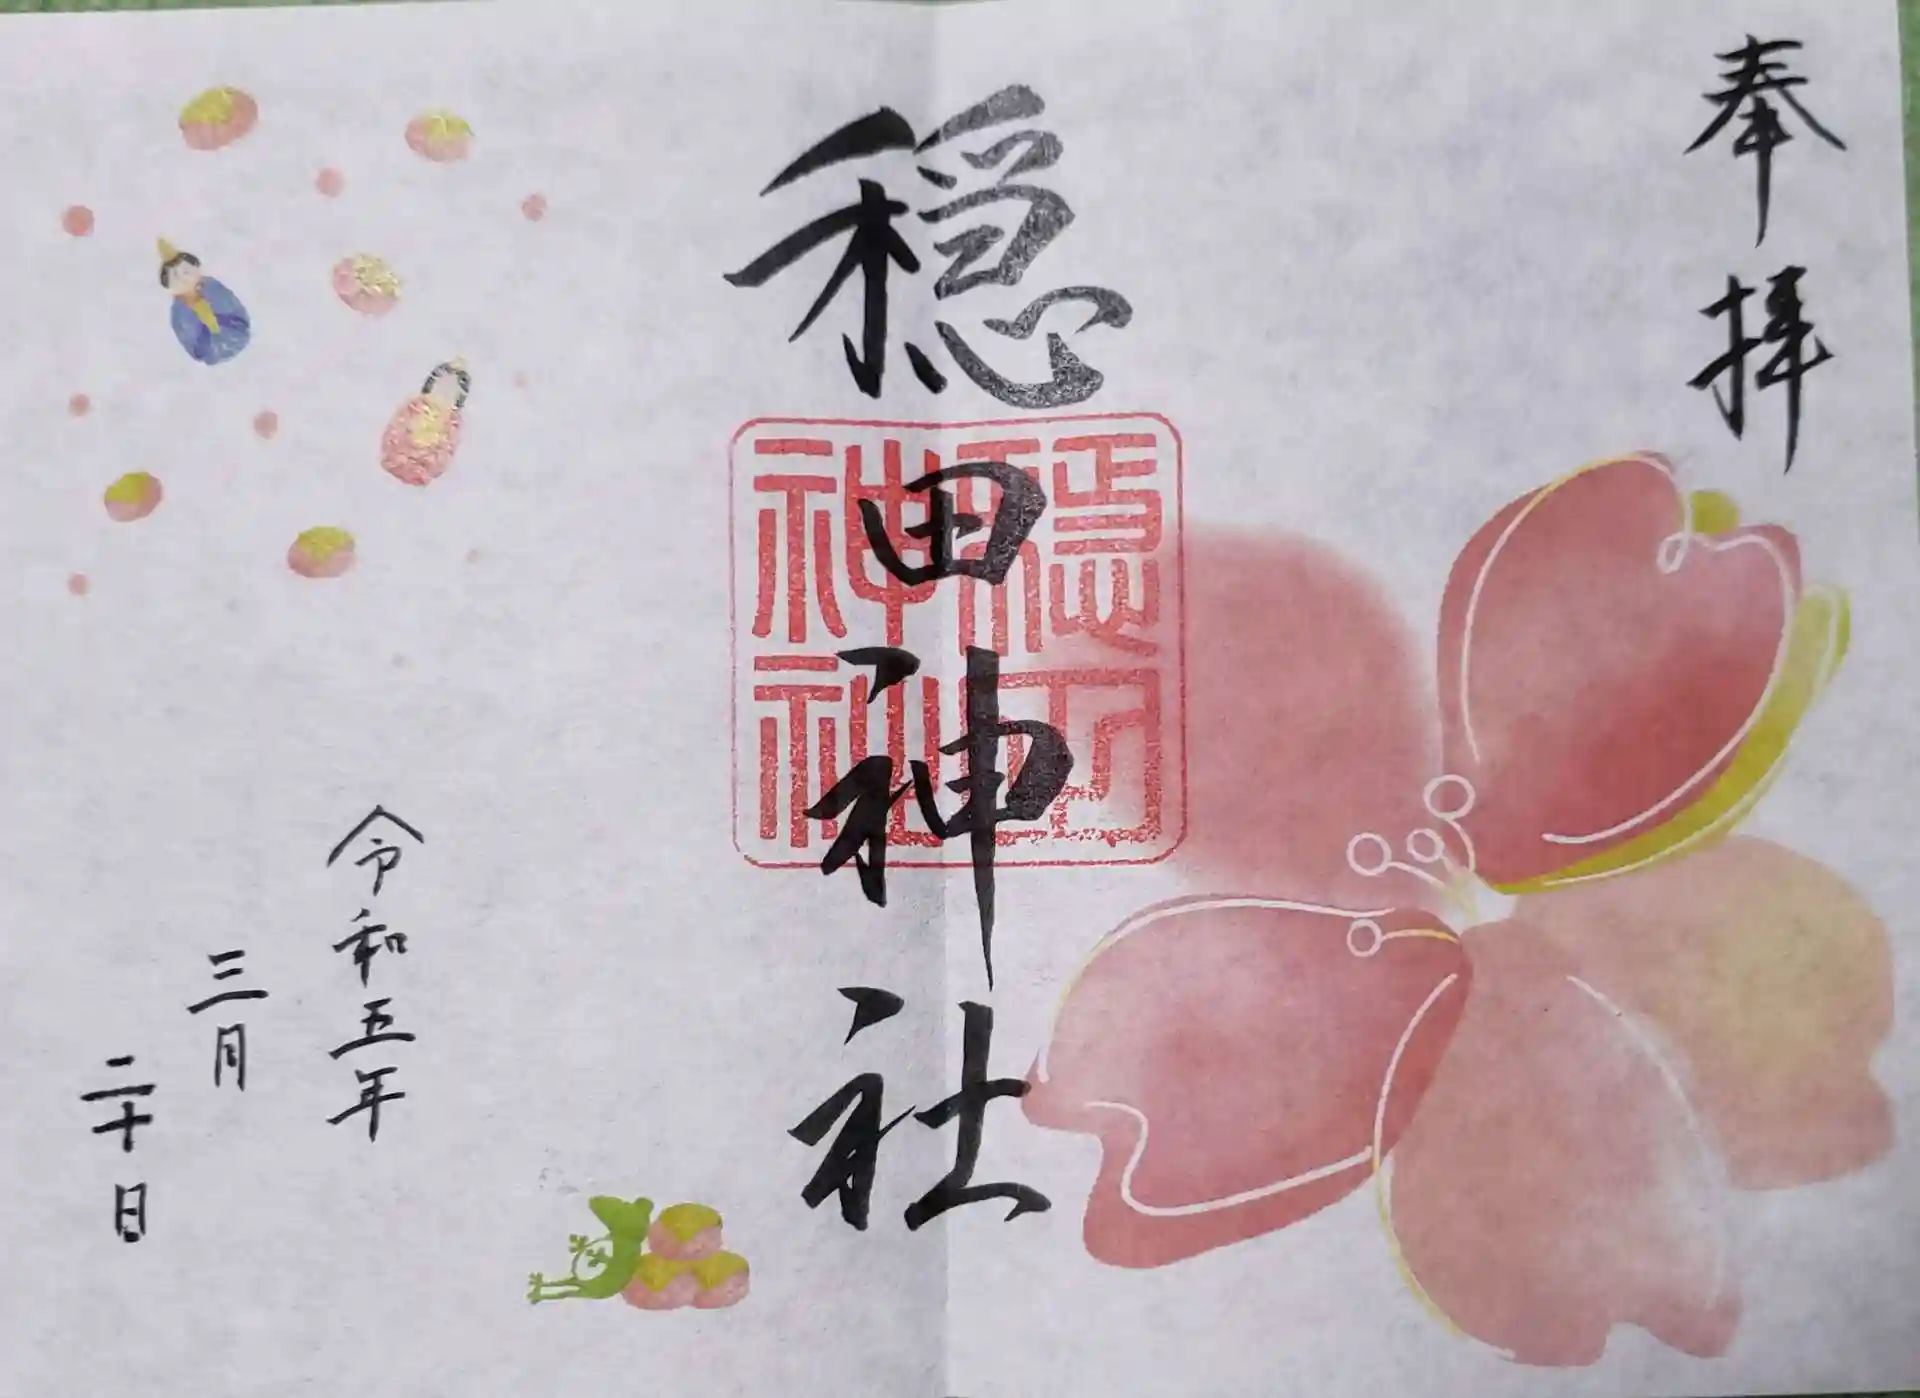 奉拝
穏田神社
穏田神社
令和五年
三月
二十日